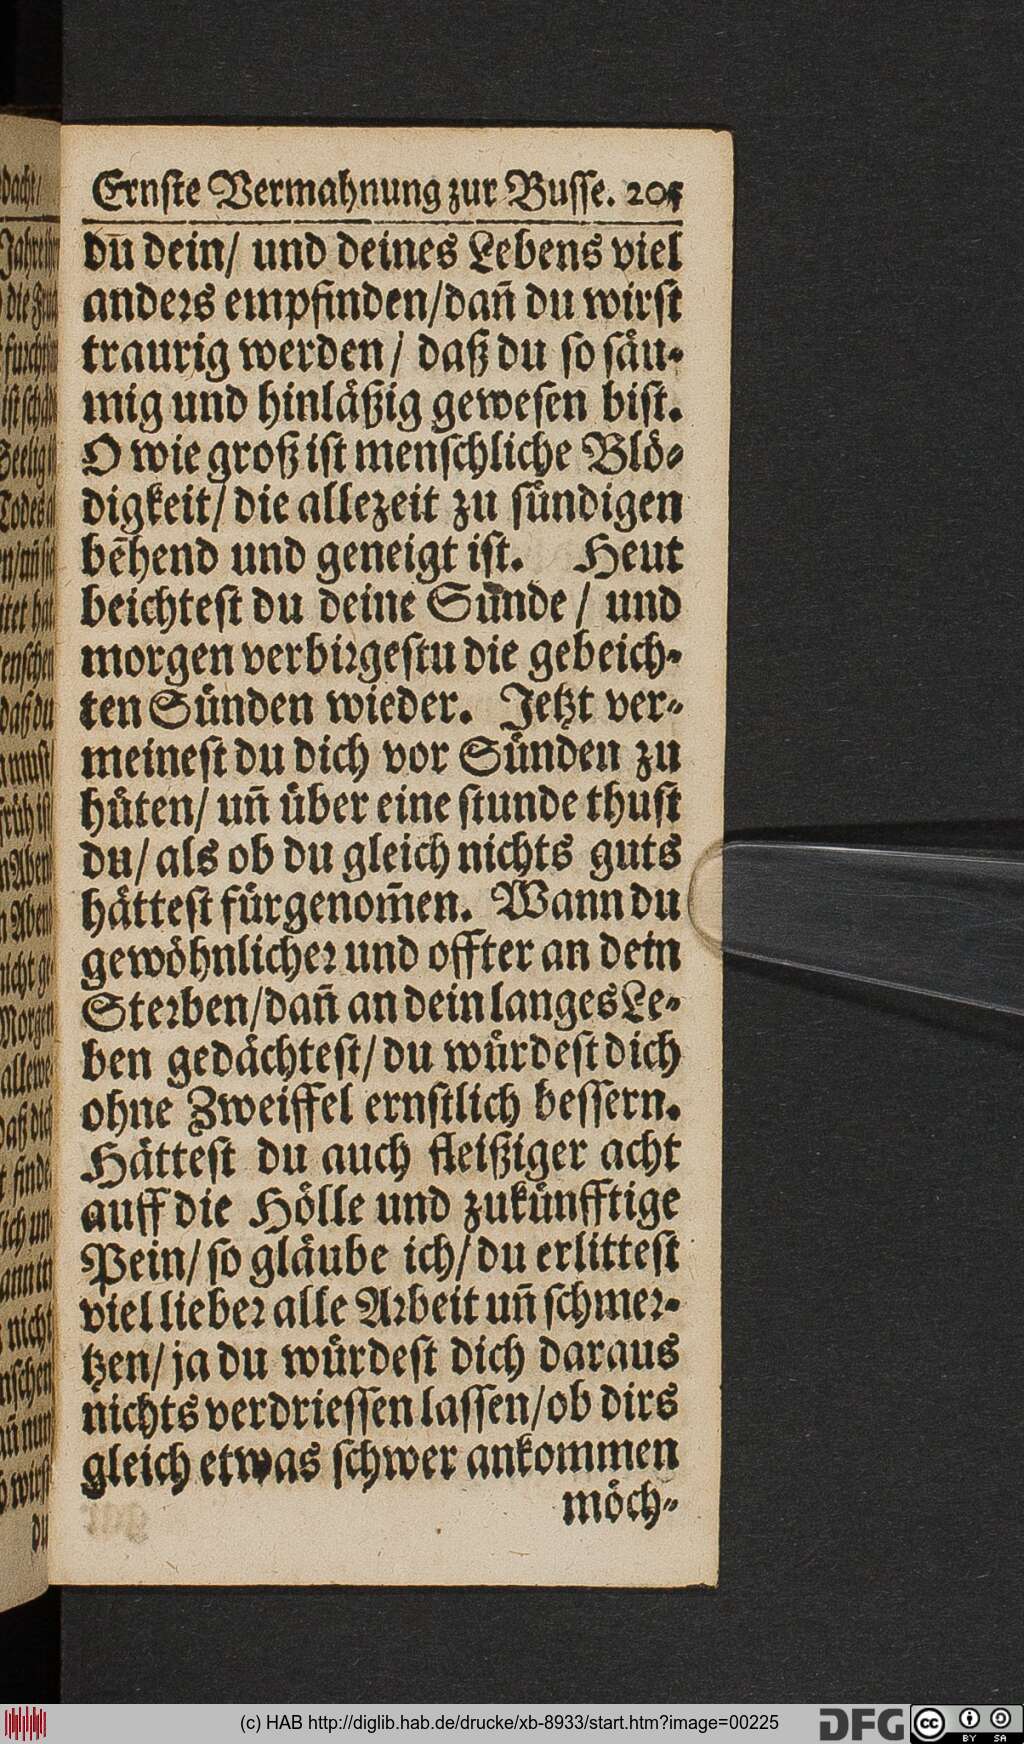 Ernste Vermahnung zur Busse. 205
du dein/ und deines Lebens viel
anders empfinden/dañ du wirst
traurig werden/ daß du so säu-
mig und hinläßig gewesen bist.
O wie groß ist menschliche Blö-
digkeit/ die allezeit zu sündigen
behend und geneigt ist. Heut
beichtest du deine Sünde/ und
morgen verbirgestu die gebeich-
ten Sünden wieder. Jetzt ver-
meinest du dich vor Sünden zu
hüten/ uñ über eine stunde thust
du/ als ob du gleich nichts guts
hättest fürgenom̃en. Wann du
gewöhnlicher und offter an dein
Sterben/dañ an dein langes Le-
ben gedächtest/ du würdest dich
ohne Zweiffel ernstlich bessern.
Hättest du auch fleißiger acht
auff die Hölle und zukünfftige
Pein/ so gläube ich/ du erlittest
viel lieber alle Arbeit uñ schmer-
tzen/ ja du würdest dich daraus
nichts verdriessen lassen/ob dirs
gleich etwas schwer ankommen
möch-
du
(c) HAB http://diglib.hab.de/drucke/xb-8933/start.htm?image=00225
DFG
cc BY SA